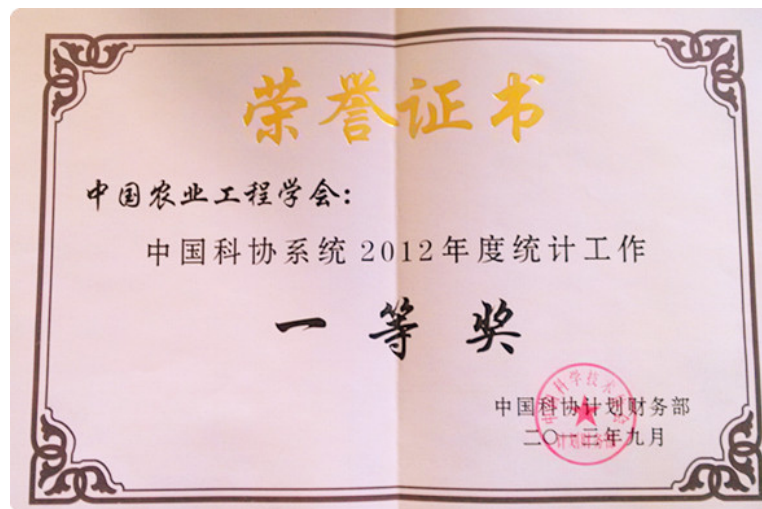 荣誉证书
中国农业工程学会:
中国科协系统2012年度统计工作
一等奖
中国科协计划财务部
二〇一三年九月
计划财务部